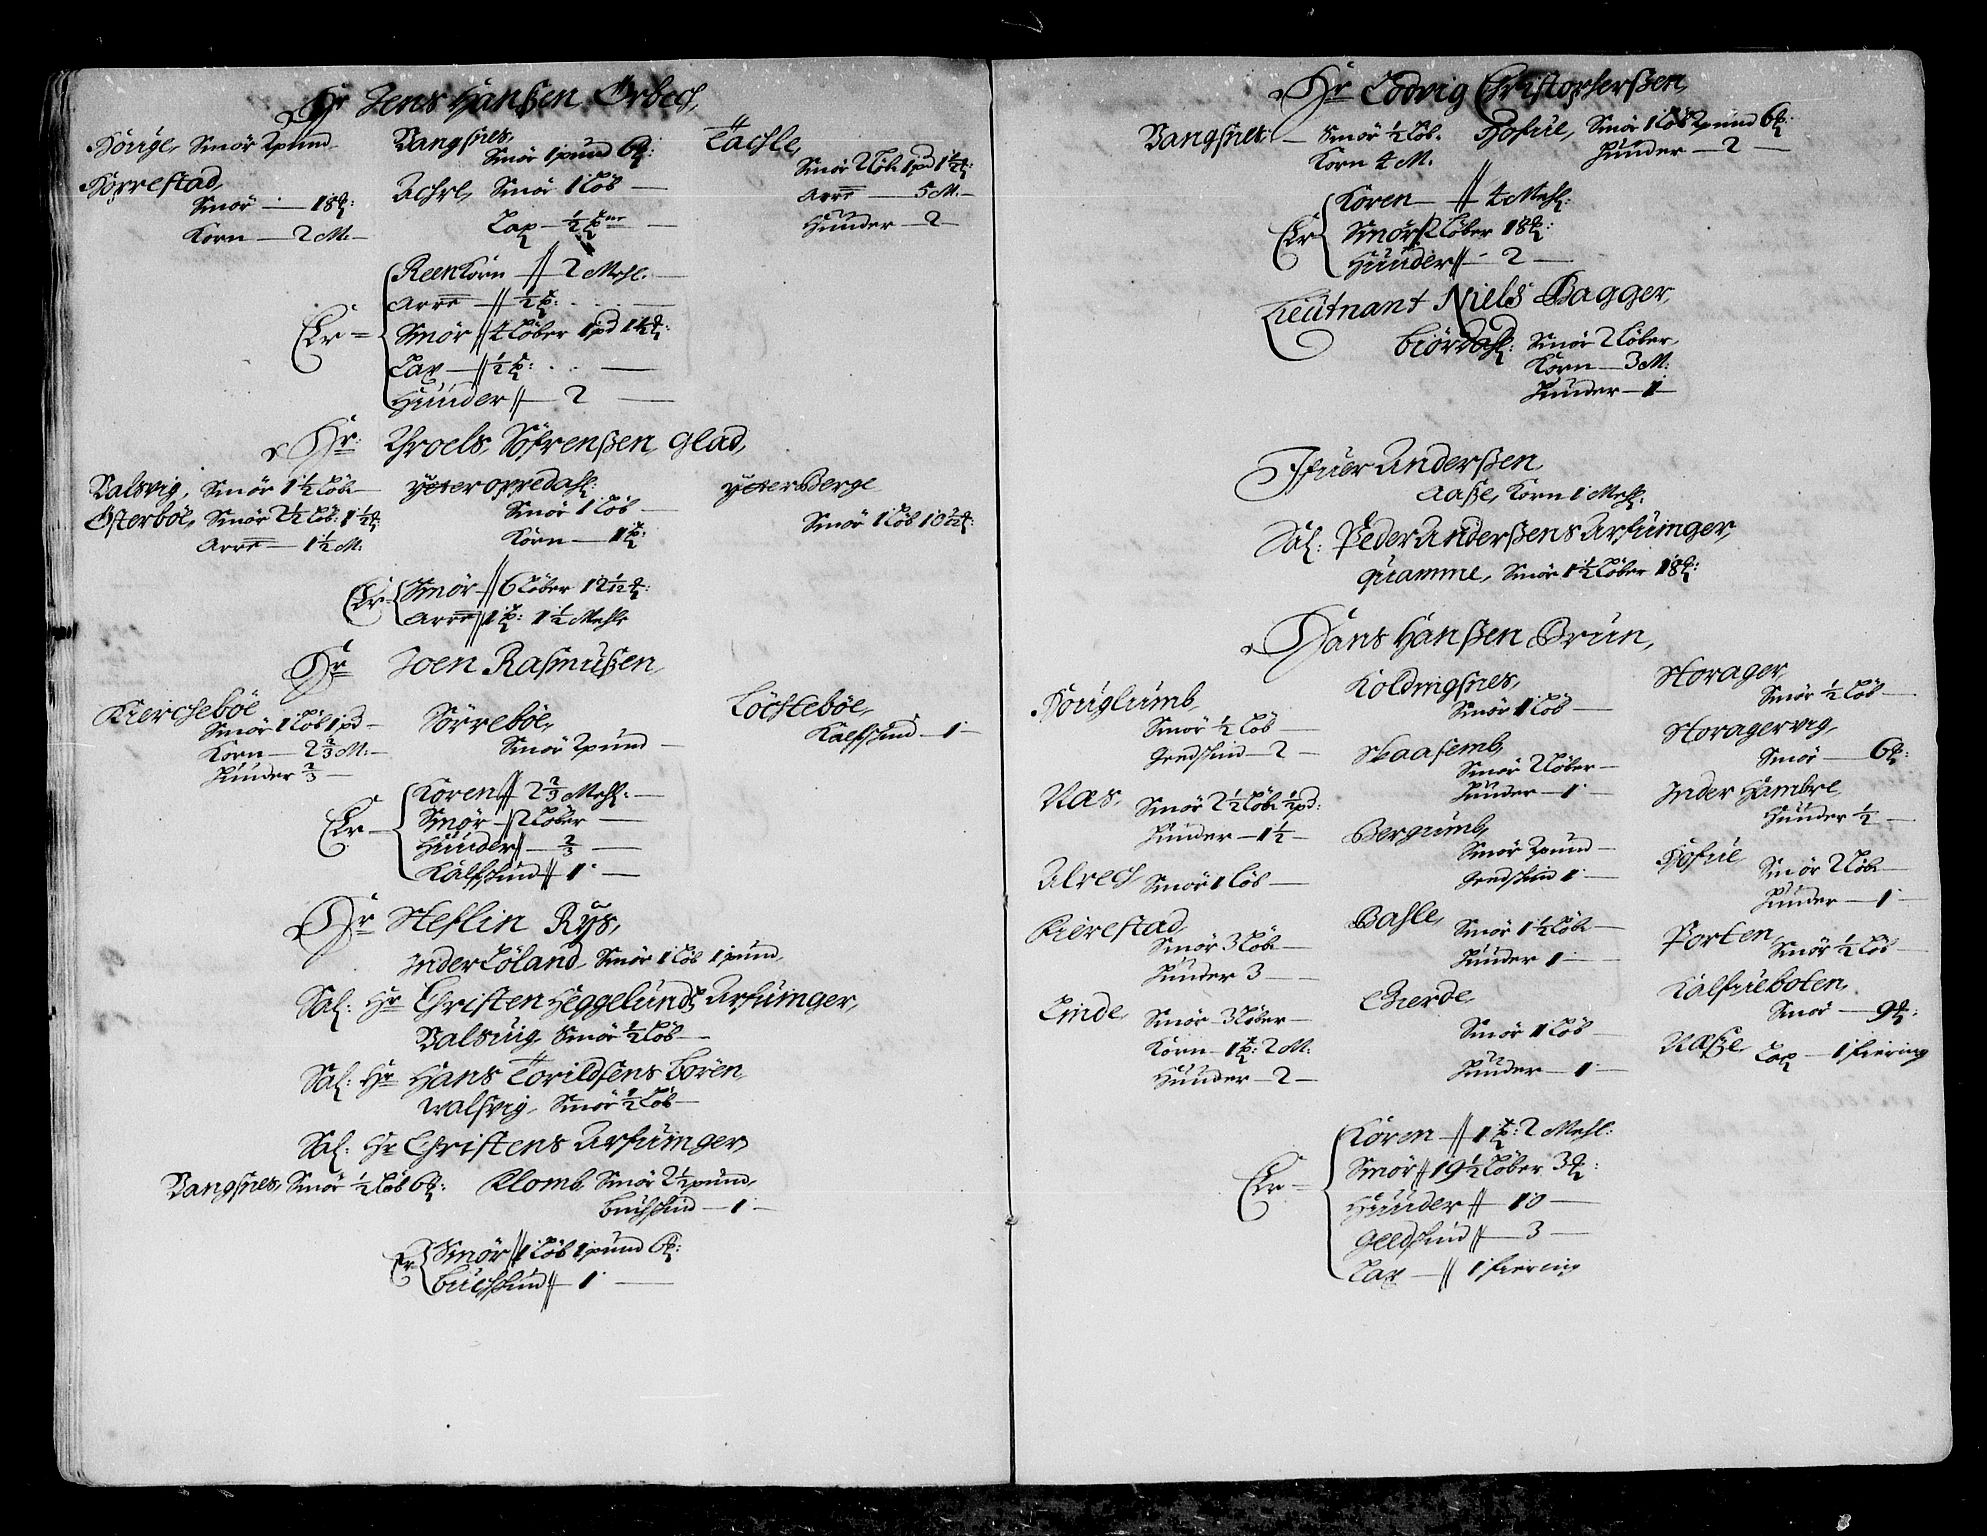 Hr Jens Hanßen Örbech,
Houge, Smör 2 pund
Horrestad,
Smör — 18 ℔:
Korn — 2 M: —
Vangsnes,
Smör 1 pund 6 ℔:
Achre, Smör 1 Löb —
Lax — ½
Tachle,
Smör 2 Löb 1 pd 1½ ℔:
Arre — 5 M: —
Huuder — 2 —
Er
Reen Korn // 2 Mehl: —
Arre // ½
Smör // 4 Löber 1 pd 1½ ℔:
Lax // ½
Huuder // 2 —
Hr: Throels Söfrenßen Glad,
Valsvig, Smör 1½ Löb —
Österböe, Smör 2½ Löb: 1½ ℔:
Arre — 1½ M:
Ytter oppedahl:
Smör 1 Löb —
Korn — 1
Ytter Berge
Smör 1 Löb 10 ℔:
Er
Smör // 6 Löber 12 ℔:
Arre // 1 1½ Mehle
Hr Joen Rasmußen,
Kiercheböe
Smör 1 Löb 1 pd —
Korn — 2⅔ M: —
Huuder ⅔ —
Sörreböe,
Smör 2 pund —
Löchteböe,
Kalfskind — 1 —
Er
Koren // 2⅔ Mehl: —
Smör // 2 Löber —
Huuder // ⅔ —
Kalfskind // 1 —
Hr Steffin Rys,
Inder Löland, Smör 1 Löb 1 pund,
Sal: Hr Christen Heggelunds Arfuinger,
Valsuig, Smör ½ Löb —
Sal: Hr Hans Torildsens Börn
Walsvig, Smör ½ Löb —
Sal: Hr Christens Arfuinger
Vangsnes, Smör ½ Löb 6 ℔:
Klomb, Smör 2½ pund,
Buchskind — 1 —
Er
Smör // 1 Löb 1 pund 6 ℔:
Buchskind // 1 —
Hr Lodvig Christopherßen,
Vangsnes — Smör ½ Löb.
Korn 4 M.
Hofue, Smör 1 Löb 2 pund 6 ℔:
Huuder — 2 —
Er
Koren // 4 Mehl:
Smör // 2 Löber 18 ℔:
Huuder // 2 —
Lieutnant Niels Bagger,
Biördahl: Smör 2 Löber,
Korn — 3 M:
Huuder — 1 —
Ifuer Anderßen,
Aaße, Korn 1 Mehl:
Sal: Peder Anderßens Arfuinger,
Quamme, Smör 1½ Löber 18 ℔:
Hans Hanßen Brun,
Houglumb,
Smör ½ Löb —
Geedskind — 2 —
Næs, Smör 2½ Löb ½ pd:
Huuder — 1½ —
Alrech Smör 1 Löb —
Kierestad,
Smör 3 Löb —
Huuder 3 —
Linde, Smör 3 Löber —
Korn — 1 2 M:
Huuder — 2 —
Koldingsnes,
Smör 1 Löb —
Skaasemb,
Smör 2 Löber —
Huuder — 1 —
Bergumb,
Smör 2 pund —
Geedskind 1 —
Bahle, Smör 1½ Löb —
Huuder 1 —
Gierde,
Smör 1 Löb —
Huuder — 1 —
Storager,
Smör ½ Löb —
Storagervig,
Smör — 6 ℔:
Inder Hambre
Huuder ½ —
Hofue Smör 2 Löb —
Huuder — 1 —
Porten,
Smör ½ Löb —
Kalfueboten,
Smör — 9 ℔:
Naße, Lax — 1 fiering
Er
Koren // 1 2 Mehl:
Smör // 19½ Löber 3 ℔:
Huuder // 10 —
Geedskind // 3 —
Lax // 1 fiering